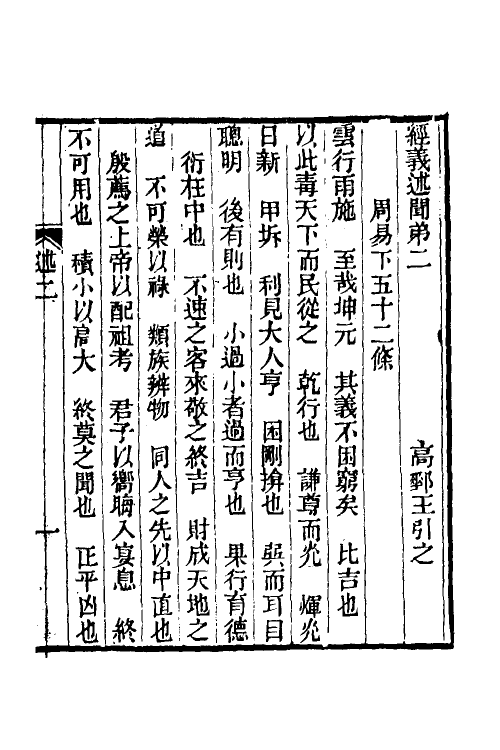 經義述聞弟二
高郵王引之
周易下五十二條
雲行雨施 至哉坤元 其義不困窮矣 比吉也
以此毒天下而民從之 乾行也 謙尊而光 煇光
日新 甲坼 利見大人亨 困剛揜也 巽而耳目
聰明 後有則也 小過小者過而亨也 果行育德
衎在中也 不速之客來敬之終吉 財成天地之
道 不可榮以祿 類族辨物 同人之先以中直也
殷薦之上帝以配祖考 君子以嚮晦入宴息 終
不可用也 積小以高大 終莫之聞也 正乎凶也
述二
一